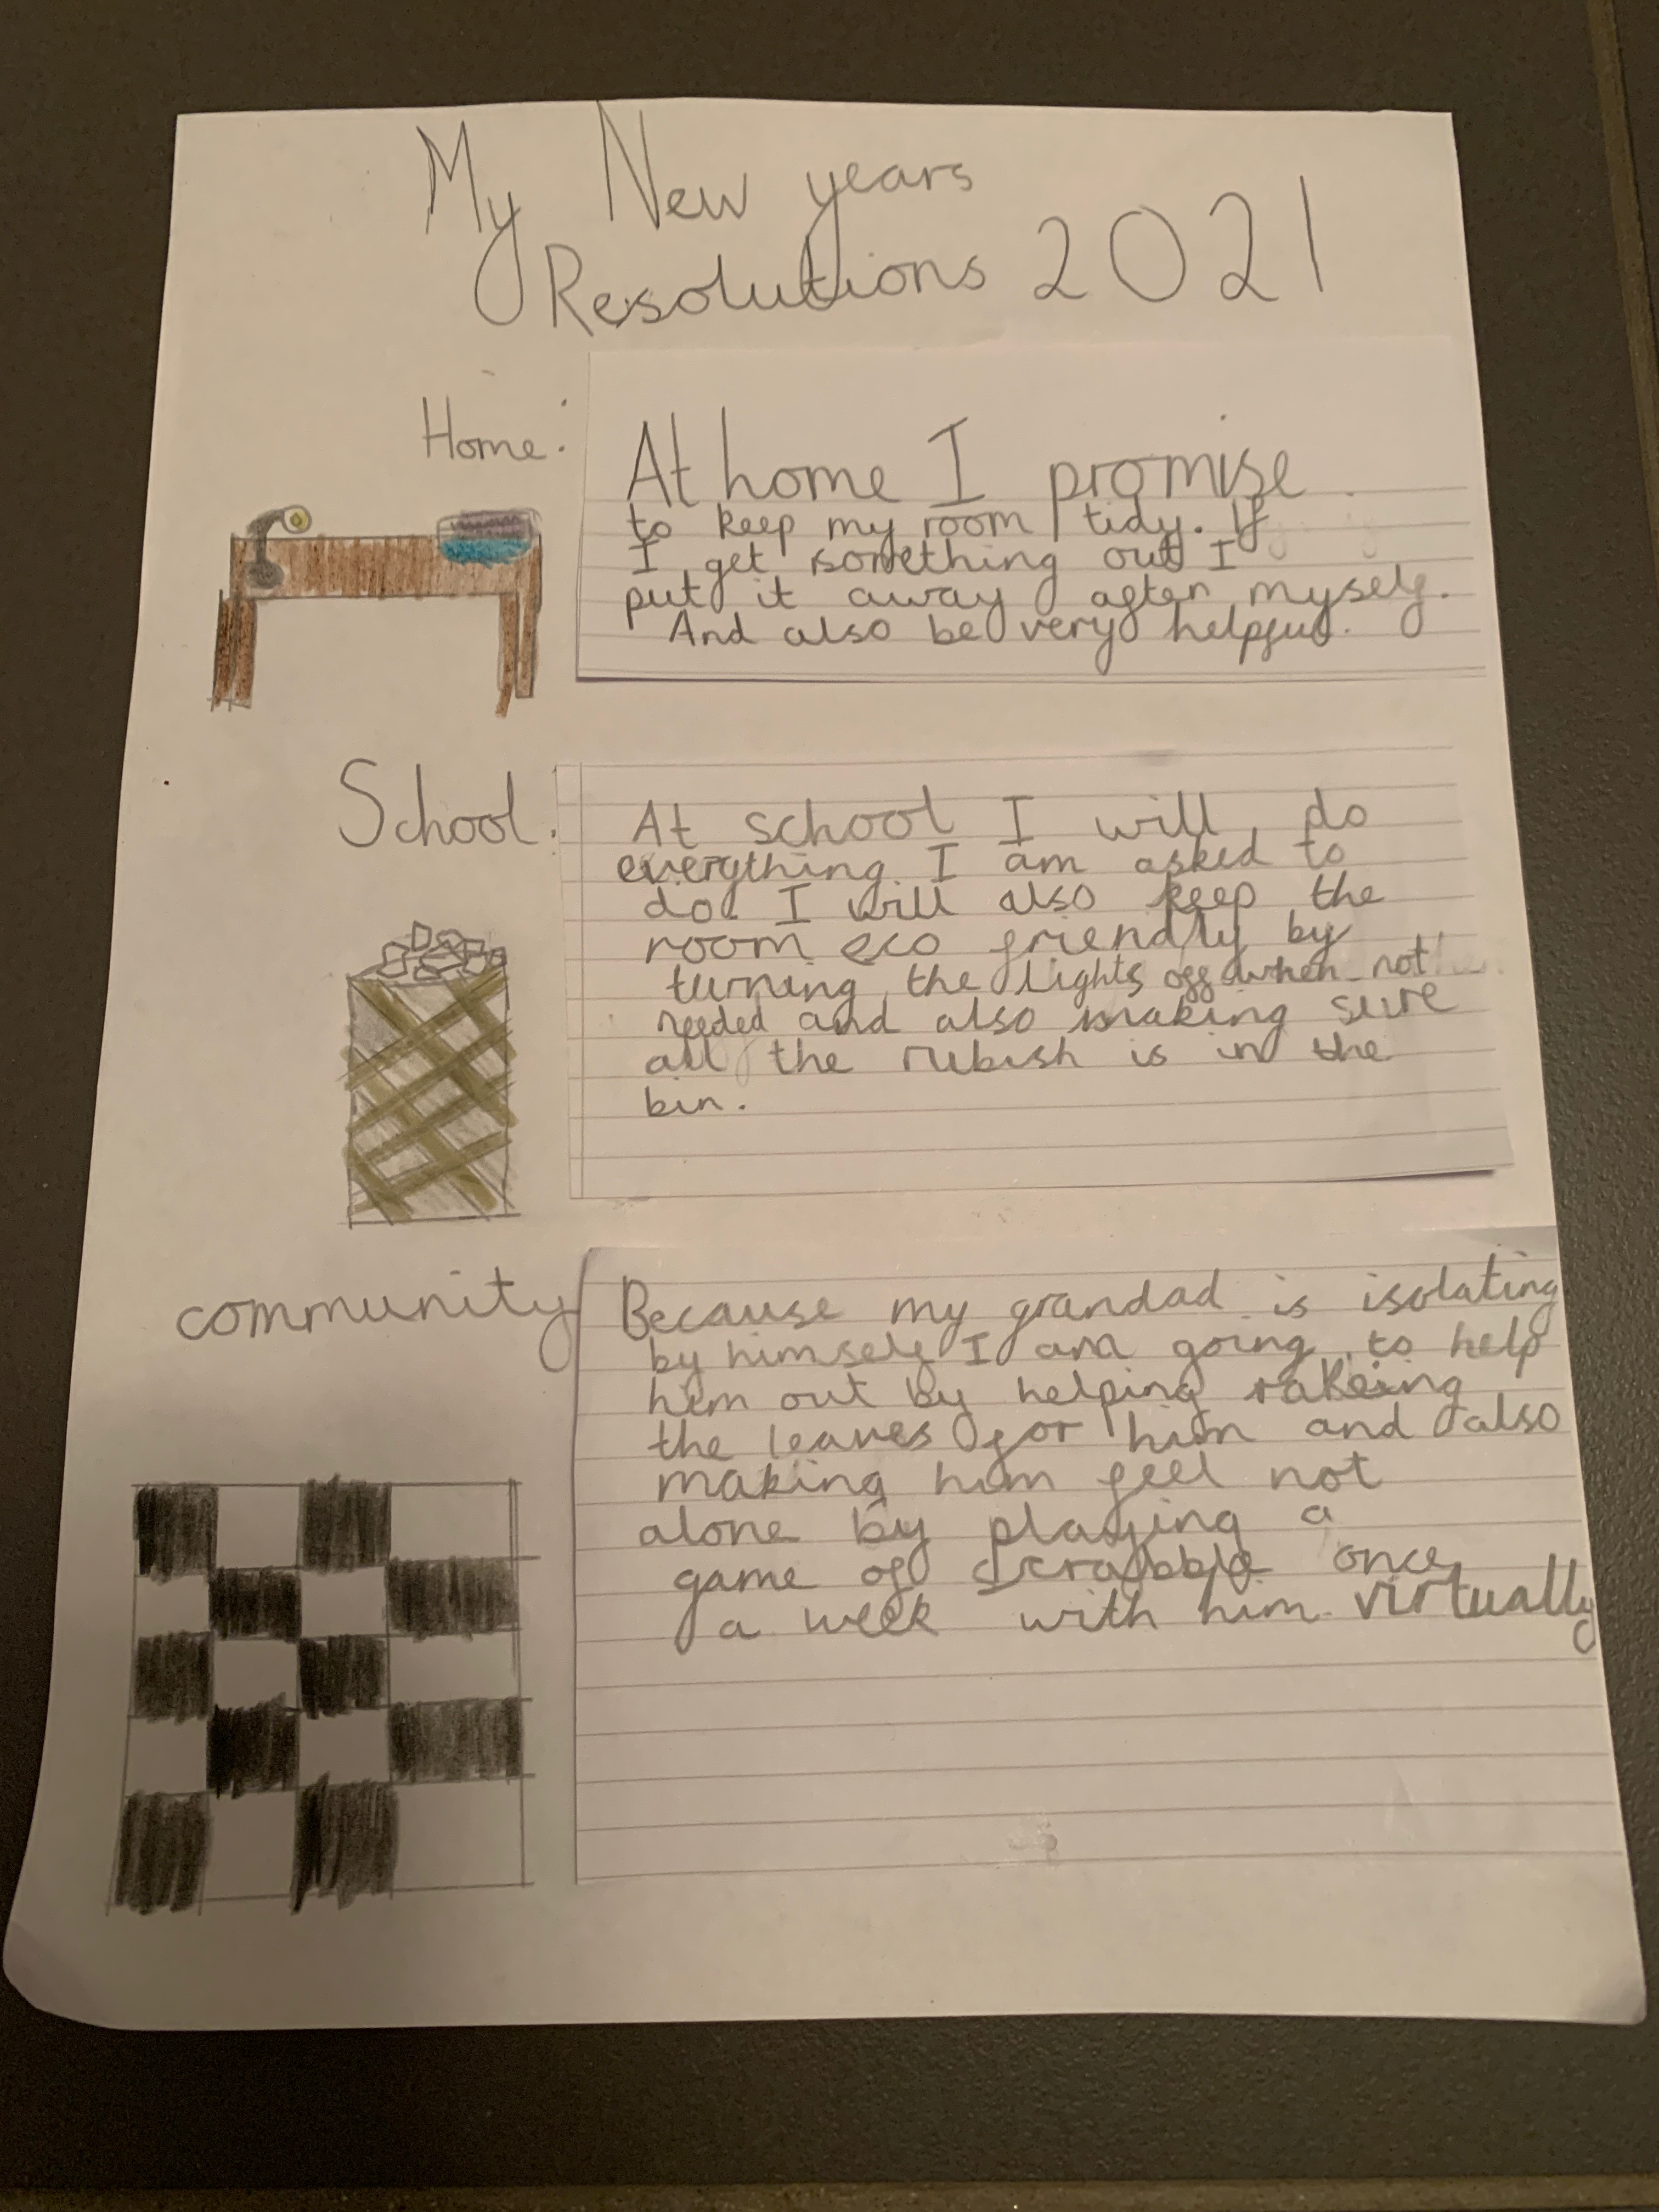 My New years
Resolutions 2021
Home:
At home I promise
to keep my room tidy. If
I get something out I
put it away after myself.
And also be very helpful.
School.
At school I will do
everything I am asked to
do. I will also keep the
room eco friendly by
turning the lights off when not
needed and also making sure
all the rubish is in the
bin.
community
Because my grandad is isolating
by himself I am going to help
him out by helping rakeing
the leaves for him and also
making him feel not
alone by playing a
game of scrabble once
a week with him virtually